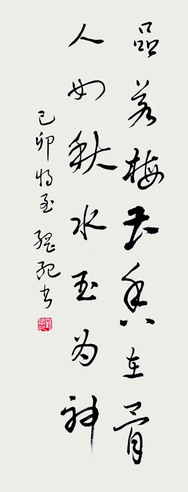 品若梅花香在骨
人如秋水玉为神
己卯冬至
书